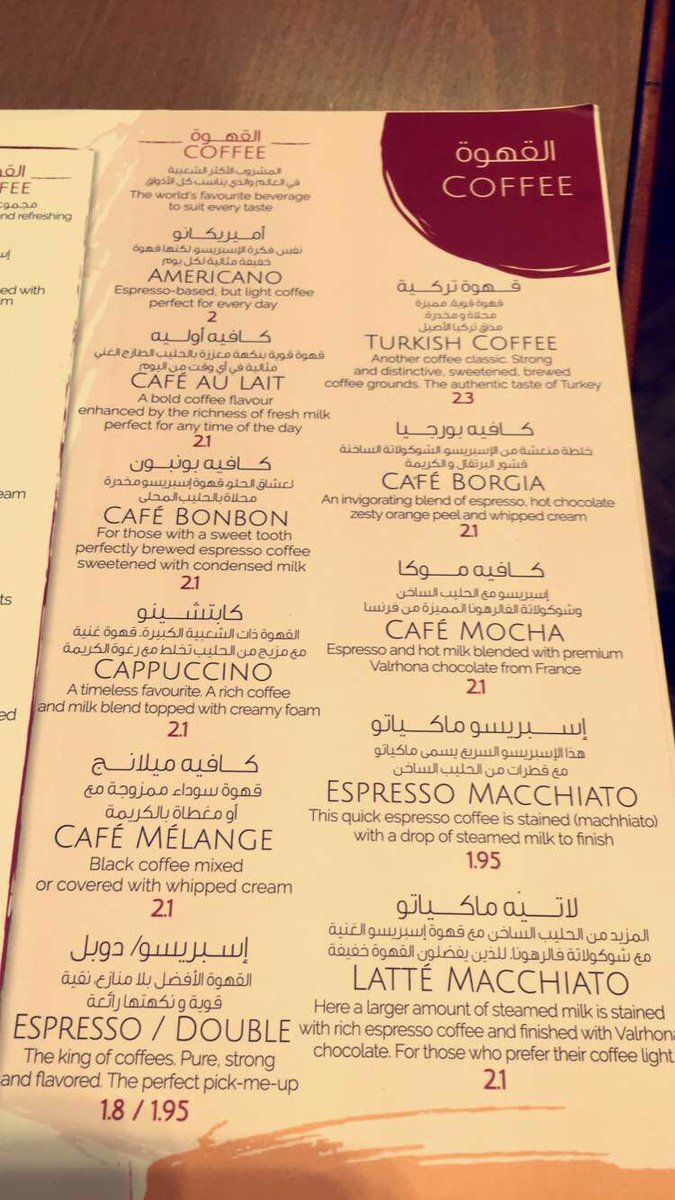 القـ
EE
مجموعـ
and refreshing
إسـ
ed with
eam
ts
القهـوة
COFFEE
المشروب الأكثر الشعبية
في العالم والذي يناسب كل الأذواق
The world's favourite beverage
to suit every taste
أمـيريـكـانو
نفس فكرة الإسبريسو، لكنها قهوة
خفيفة مثالية لكل يوم
AMERICANO
Espresso-based, but light coffee
perfect for every day
2
كـافيه أولـيه
قهوة قوية بنكهة معززة بالحليب الطازج الغني
مثالية في أي وقت من اليوم
CAFÉ AU LAIT
A bold coffee flavour
enhanced by the richness of fresh milk
perfect for any time of the day
2.1
كـافيه بونبـون
لعشاق الحلو، قهوة إسبريسو مخدرة
محلاة بالحليب المحلى
CAFÉ BONBON
For those with a sweet tooth
perfectly brewed espresso coffee
sweetened with condensed milk
2.1
كابتشـينو
القهوة ذات الشعبية الكبيرة، قهوة غنية
مع مزيج من الحليب تخلط مع رغوة الكريمة
CAPPUCCINO
A timeless favourite. A rich coffee
and milk blend topped with creamy foam
2.1
كـافيه ميلانـج
قهوة سوداء ممزوجة مع
أو مغطاة بالكريمة
CAFÉ MÉLANGE
Black coffee mixed
or covered with whipped cream
2.1
إسـبريسـو/ دوبـل
القهوة الأفضل بلا منازع، نقية
قوية و نكهتها رائعة
ESPRESSO / DOUBLE
The king of coffees. Pure, strong
and flavored. The perfect pick-me-up
1.8 / 1.95
القهـوة
COFFEE
قـهـوة تركـية
قهوة قوية، مميزة
محلاة و مخدرة،
مذاق تركيا الأصيل
TURKISH COFFEE
Another coffee classic. Strong
and distinctive, sweetened, brewed
coffee grounds. The authentic taste of Turkey
2.3
كـافيه بورجـيا
خلطة منعشة من الإسبريسو، الشوكولاتة الساخنة
قشور البرتقال و الكريمة
CAFÉ BORGIA
An invigorating blend of espresso, hot chocolate
zesty orange peel and whipped cream
2.1
كـافيه مـوكـا
إسبريسو مع الحليب الساخن
وشوكولاتة الفالرهونا المميزة من فرنسا
CAFÉ MOCHA
Espresso and hot milk blended with premium
Valrhona chocolate from France
2.1
إسـبريسو ماكـياتو
هذا الإسبريسو السريع يسمى ماكياتو
مع قطرات من الحليب الساخن
ESPRESSO MACCHIATO
This quick espresso coffee is stained (machhiato)
with a drop of steamed milk to finish
1.95
لاتـيه ماكـياتو
المزيد من الحليب الساخن مع قهوة إسبريسو الغنية
مع شوكولاتة فالرهونا، للذين يفضلون القهوة خفيفة
LATTÉ MACCHIATO
Here a larger amount of steamed milk is stained
with rich espresso coffee and finished with Valrhona
chocolate. For those who prefer their coffee light
2.1